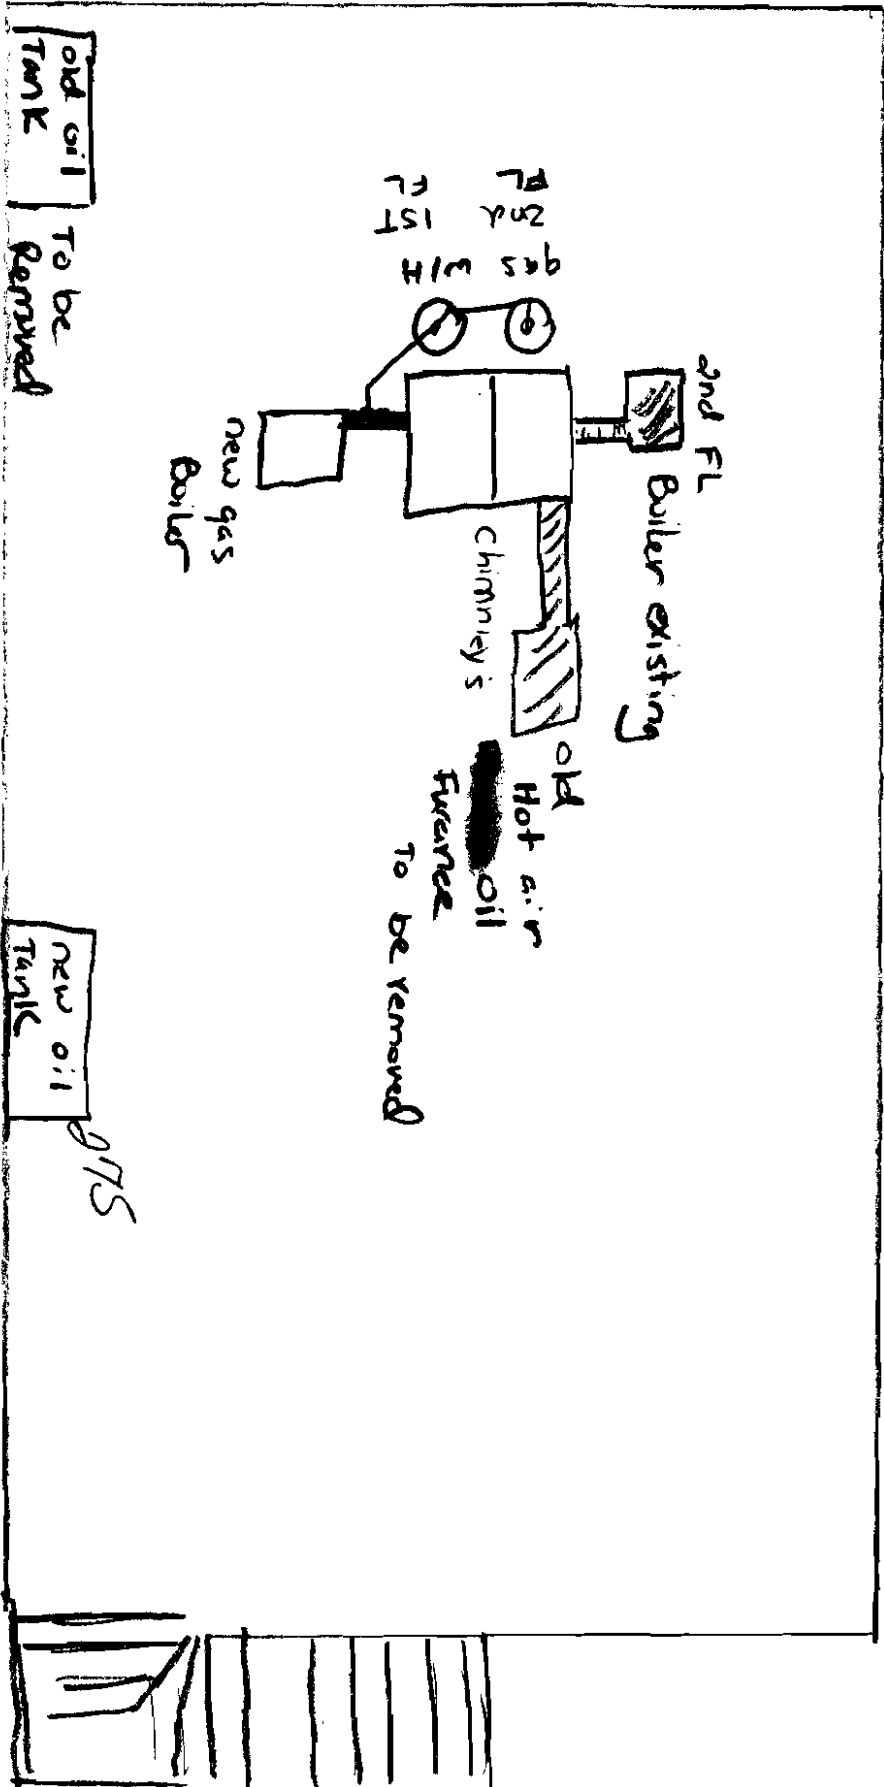 old oil
Tank
To be
Removed
gas W/H
2nd 1ST
FL FL
2nd FL
Boiler existing
new gas
Boiler
Chimney's
old
Hot air
oil
Furance
To be removed
new oil
Tank
275